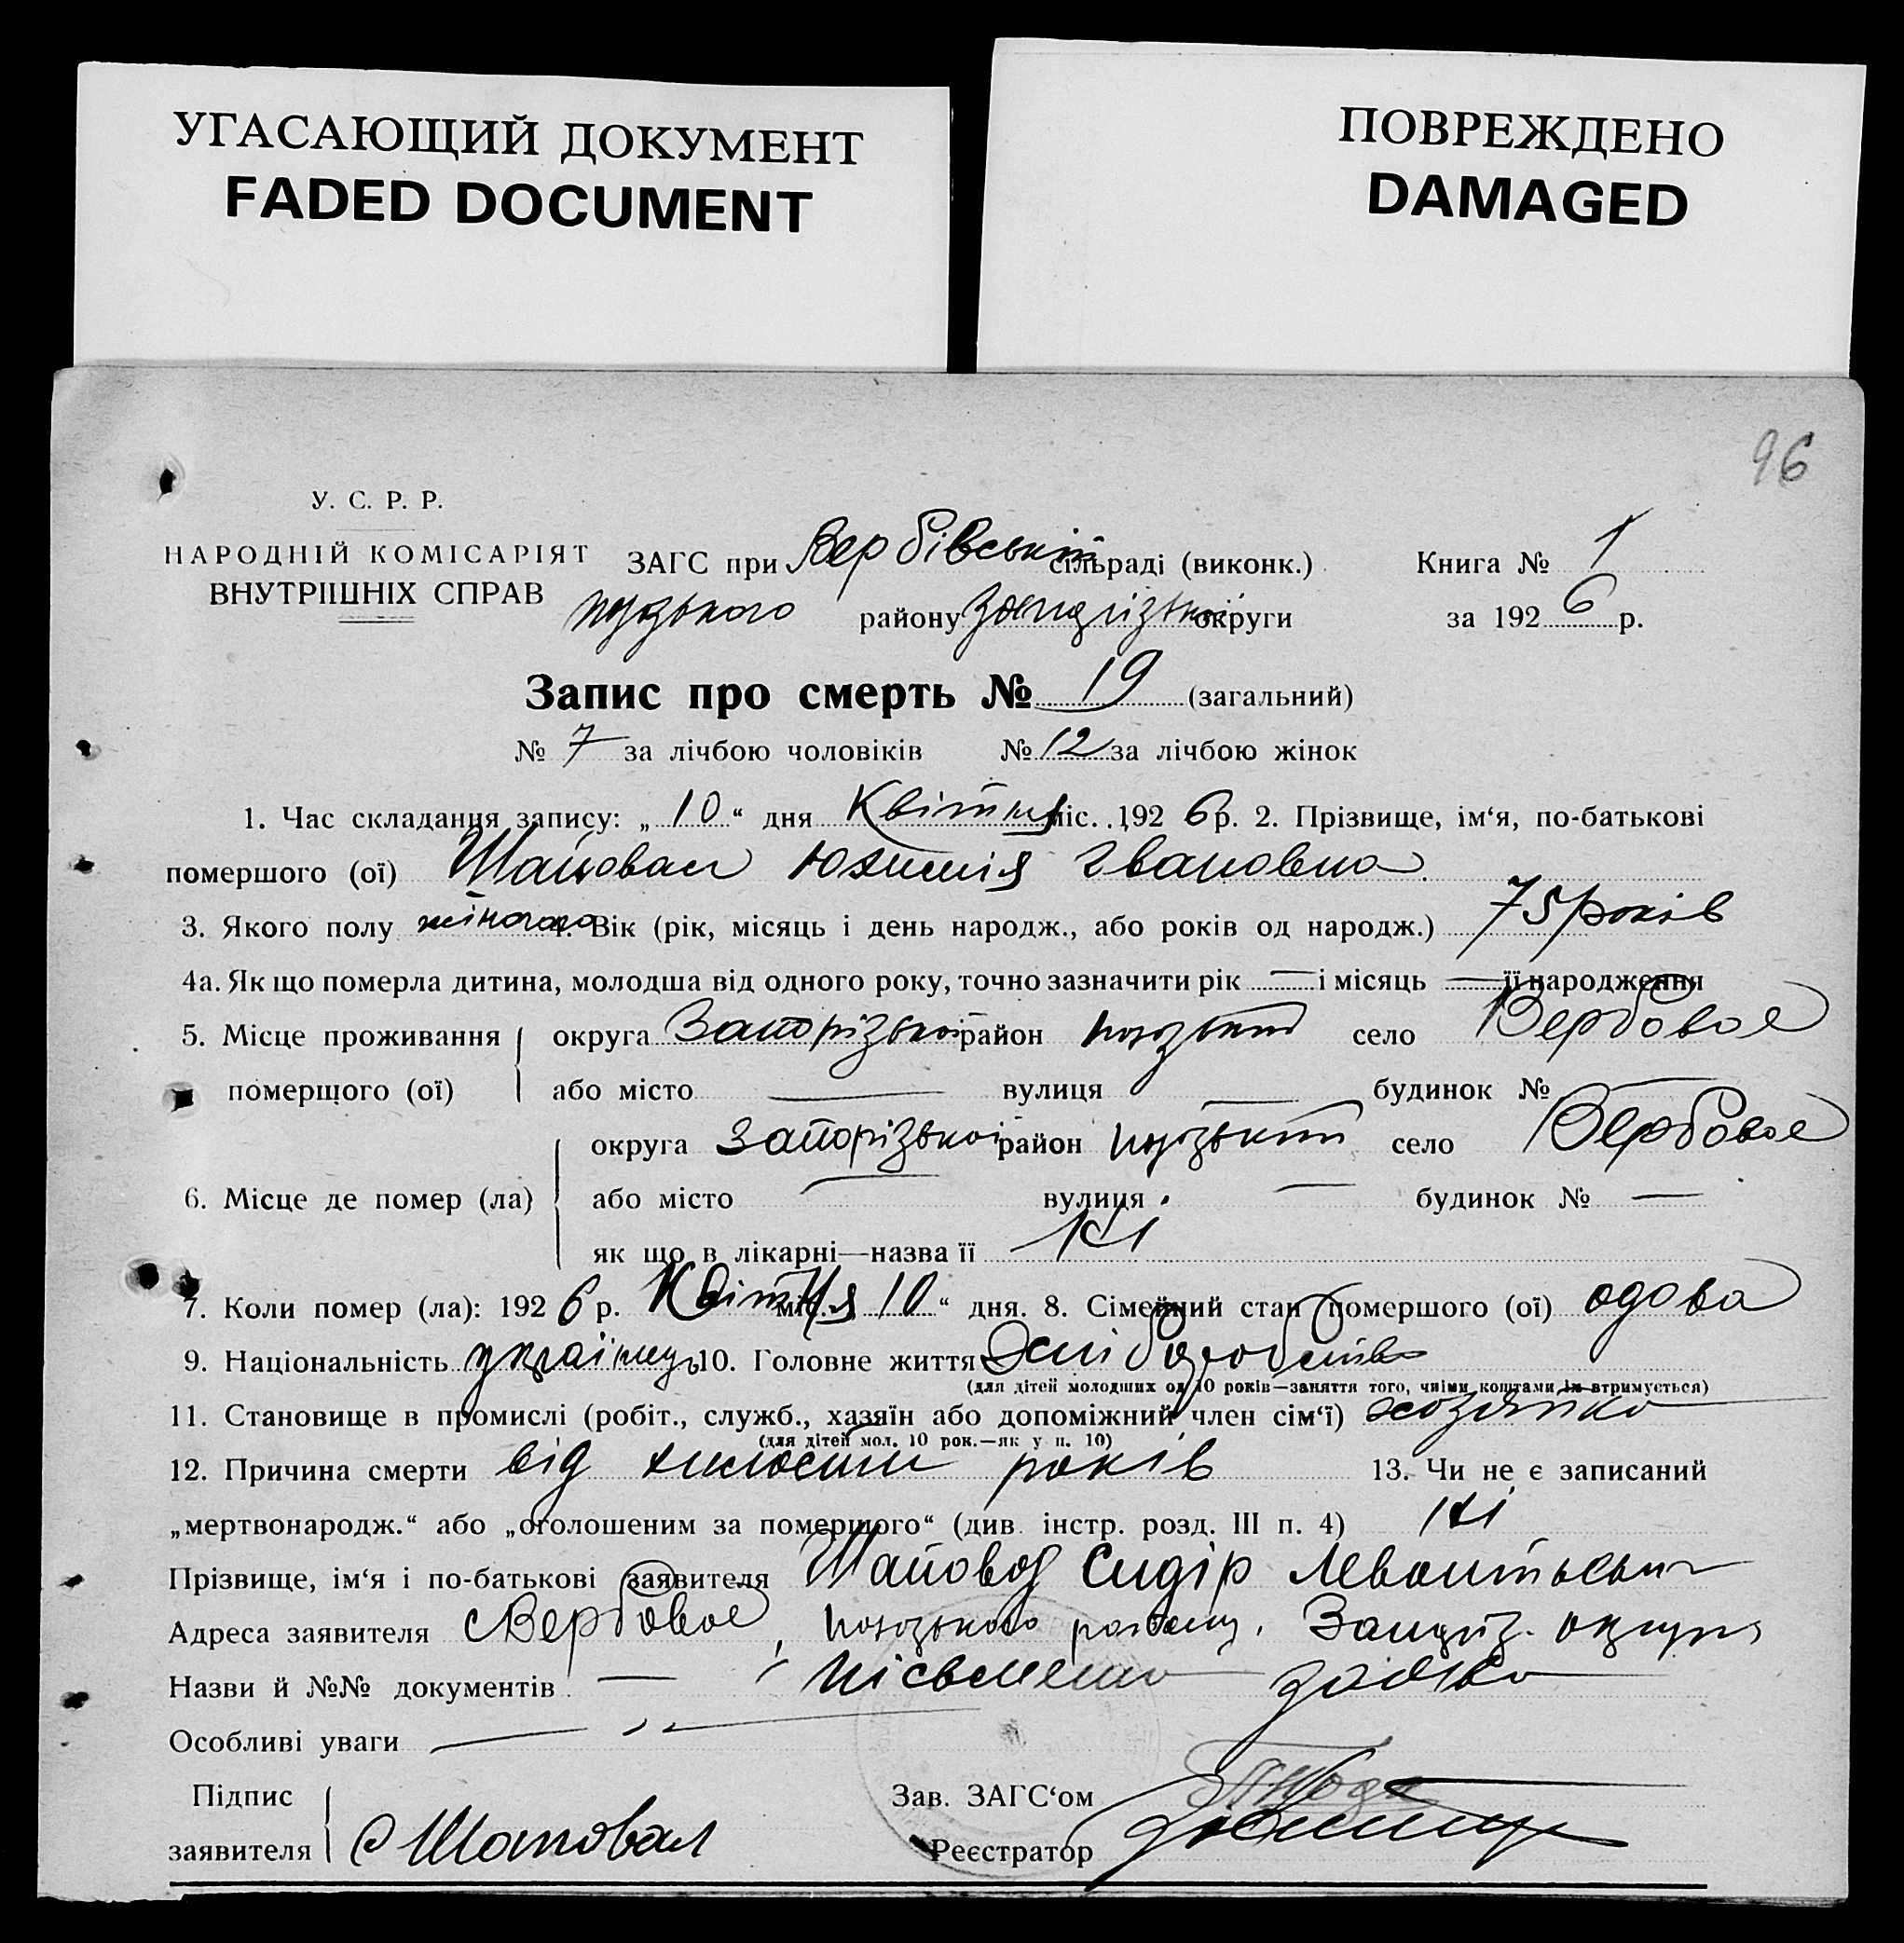 УГАСАЮЩИЙ ДОКУМЕНТ
FADED DOCUMENT
ПОВРЕЖДЕНО
DAMAGED
96
У. С. Р. Р.
НАРОДНІЙ КОМІСАРІЯТ
ВНУТРІШНІХ СПРАВ
ЗАГС при Вербівській сільраді (виконк.) Книга № 1
району округи за 1926 р.
Запис про смерть № 19 (загальний)
№ 7 за лічбою чоловіків № 12 за лічбою жінок
1. Час складання запису: „10“ дня Квітня міс. 1926 р. 2. Прізвище, ім‘я, по-батькові
помершого (ої) Шаповал Юхимія Івановна
3. Якого полу жіночого 4. Вік (рік, місяць і день народж., або років од народж.) 75 років
4а. Як що померла дитина, молодша від одного року, точно зазначити рік — і місяць — її народження
5. Місце проживання округа Запорізької район село Вербовое
помершого (ої) або місто — вулиця — будинок № —
округа Запорізької район село Вербовое
6. Місце де помер (ла) або місто — вулиця — будинок № —
як що в лікарні—назва її Ні
7. Коли помер (ла): 1926 р. Квітня міс. „10“ дня. 8. Сімейний стан помершого (ої) одова
9. Національність 10. Головне життя
(для дітей молодших од 10 років—заняття того, чиїми коштами їх втримується)
11. Становище в промислі (робіт., служб., хазяїн або допоміжний член сім‘ї) хозяйка
(для дітей мол. 10 рок.—як у п. 10)
12. Причина смерти від років 13. Чи не є записаний
„мертвонародж.“ або „оголошеним за помершого“ (див. інстр. розд. III п. 4) Ні
Прізвище, ім‘я і по-батькові заявителя Шаповал Сидір
Адреса заявителя с Вербовое, району,
Назви й №№ документів —
Особливі уваги —
Підпис
заявителя С Шаповал
Зав. ЗАГС‘ом
Реєстратор